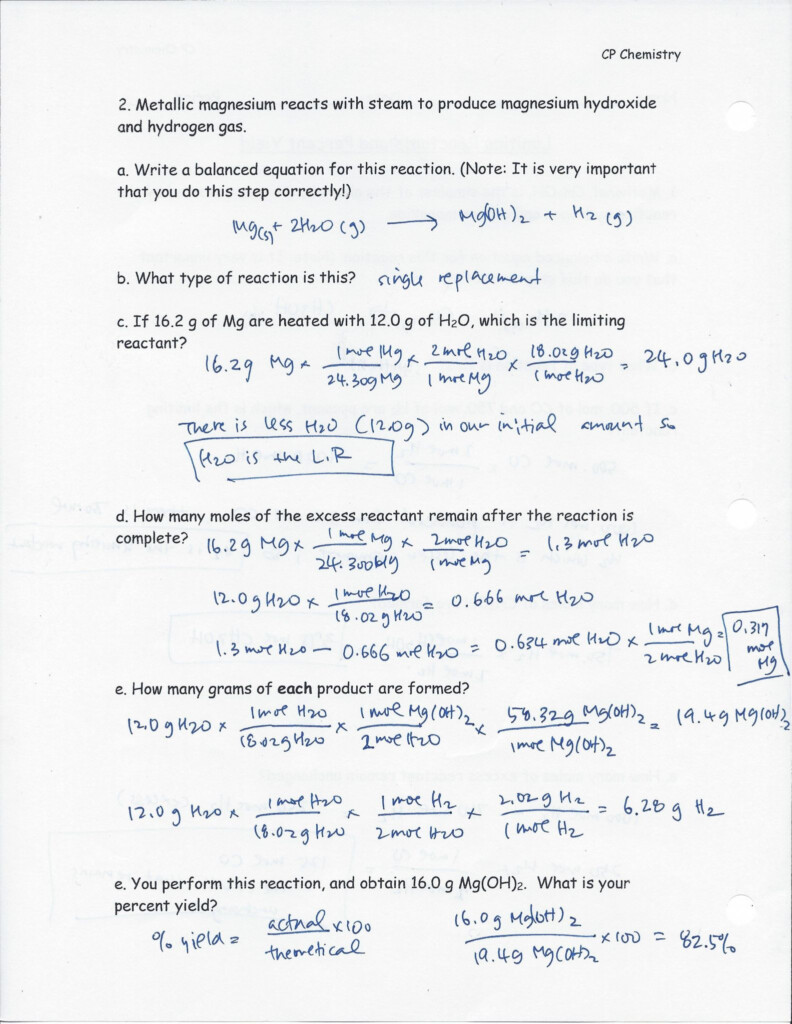 CP Chemistry
2. Metallic magnesium reacts with steam to produce magnesium hydroxide
and hydrogen gas.
a. Write a balanced equation for this reaction. (Note: It is very important
that you do this step correctly!)
Mg(s) + 2H2O (g) ⟶ Mg(OH)2 + H2 (g)
b. What type of reaction is this? single replacement
c. If 16.2 g of Mg are heated with 12.0 g of H2O, which is the limiting
reactant?
16.2g Mg × 1 mol Mg / 24.30g Mg × 2 mol H2O / 1 mol Mg × 18.02g H2O / 1 mol H2O = 24.0g H2O
There is less H2O (12.0g) in our initial amount so
H2O is the L.R
d. How many moles of the excess reactant remain after the reaction is
complete? 16.2g Mg × 1 mol Mg / 24.300 Mg × 2 mol H2O / 1 mol Mg = 1.3 mol H2O
12.0g H2O × 1 mol H2O / 18.02g H2O = 0.666 mol H2O
1.3 mol H2O − 0.666 mol H2O = 0.634 mol H2O × 1 mol Mg / 2 mol H2O = 0.317 mol Mg
e. How many grams of each product are formed?
12.0g H2O × 1 mol H2O / 18.02g H2O × 1 mol Mg(OH)2 / 2 mol H2O × 58.32g Mg(OH)2 / 1 mol Mg(OH)2 = 19.4g Mg(OH)2
12.0 g H2O × 1 mol H2O / 18.02g H2O × 1 mol H2 / 2 mol H2O × 2.02g H2 / 1 mol H2 = 6.28 g H2
e. You perform this reaction, and obtain 16.0 g Mg(OH)2. What is your
percent yield?
% yield = actual / theoretical × 100
16.0g Mg(OH)2 / 19.4g Mg(OH)2 × 100 = 82.5%